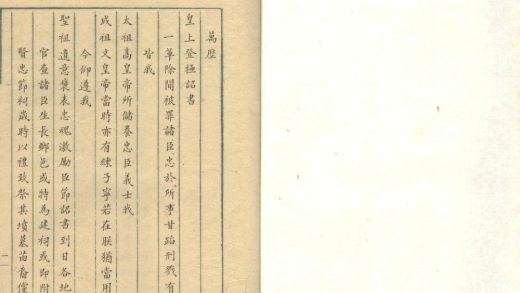 萬歷
皇上登極詔書
一革除間被罪諸臣忠於所事甘蹈刑戮有
皆我
太祖高皇帝所儲養忠臣義士我
成祖文皇帝當時亦有練子寧若在朕猶當用
今仰遵我
聖祖遺意褒表忠魂激勵臣節詔書到日各地
官查諸臣生長鄉邑或特為建祠或即附
賢忠節祠歲時以禮致祭其墳墓苗裔僅
一